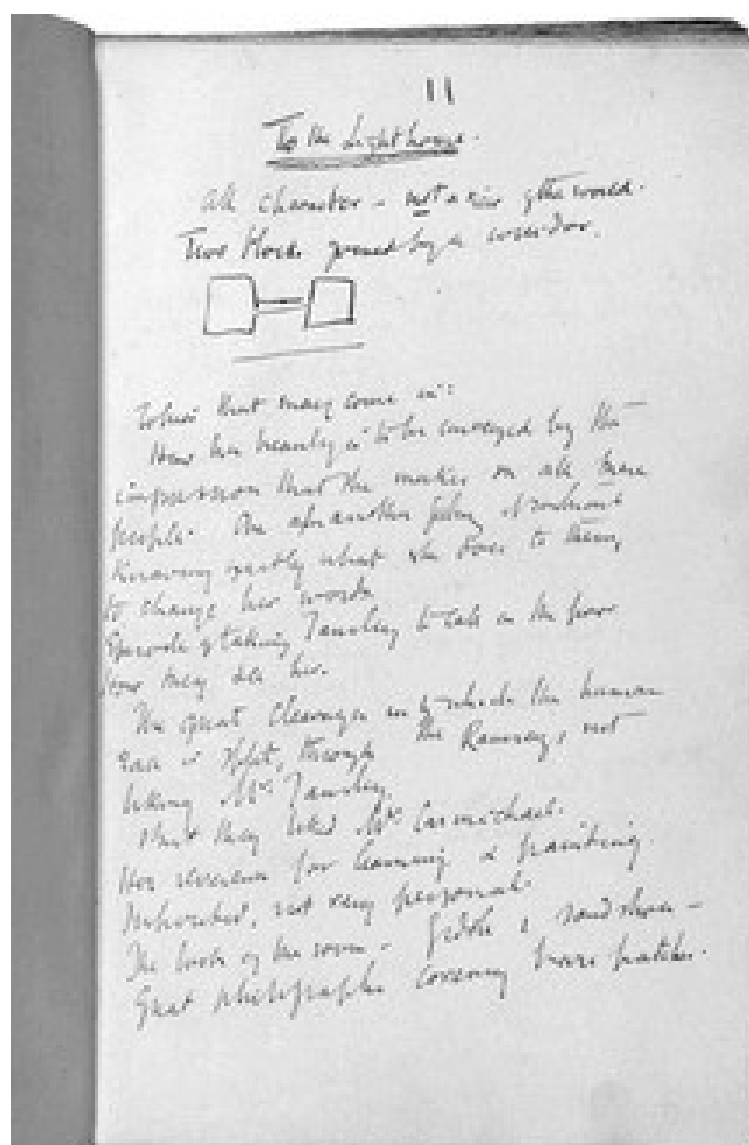 11
To the Lighthouse.
All character - not a view of the world.
Two blocks joined by a corridor.
Ideas that may come in:
How her beauty is to be conveyed by the
impression that she makes on all these
people. One after another feeling it without
knowing exactly what she does to them,
to charge her words.
Episode of taking Tansley to call on the poor.
How they see her.
The great cleavages into which the human
race is split, through the Ramsays not
liking Mr. Tansley.
But they liked Mr. Carmichael.
Her reverence for learning & painting.
Inhibited, not very personal.
The look of the room - fiddle & sand shoes -
Great photographs covering bare patches.